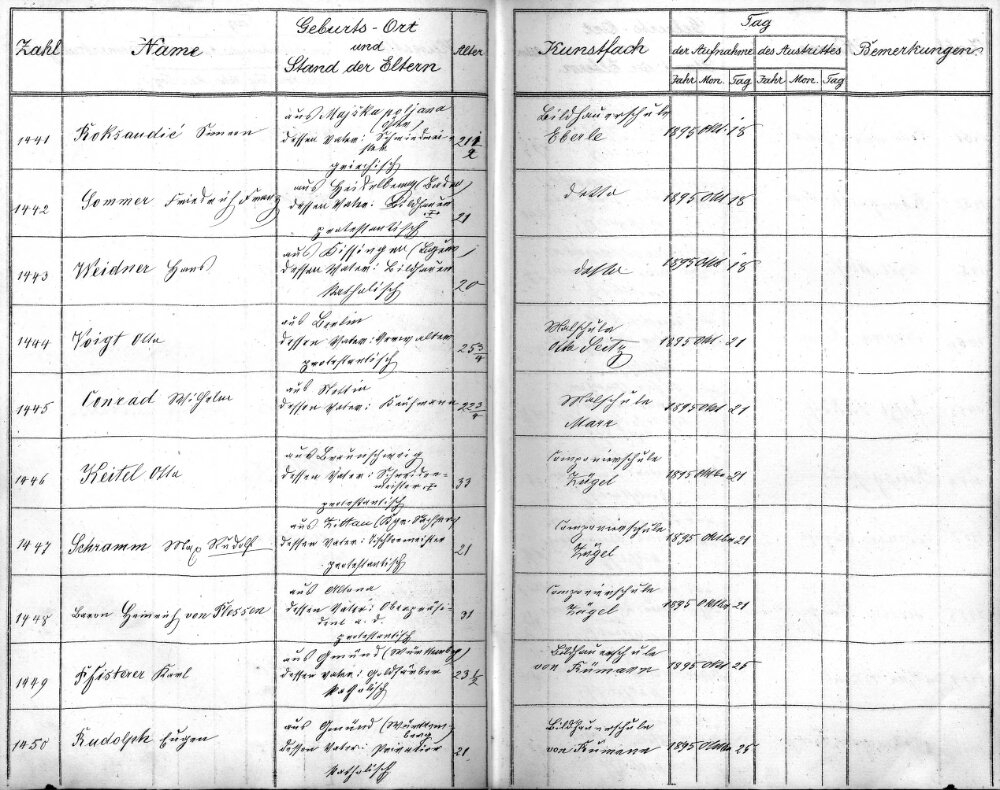 Zahl Name Geburts-Ort und Stand der Eltern Alter Kunstfach Tag der Aufnahme des Austrittes Bemerkungen
Jahr Mon. Tag Jahr Mon. Tag
aus Majska poljana
1441 Roksandić Simeon
dessen Vater:
griechisch
21 1/2
Bildhauerschule
Eberle 1895 Okt. 18
aus Heidelberg (Baden)
1442 Sommer Friedrich Franz
dessen Vater: Bildhauer †
protestantisch
21
detto 1895 Okt 18
aus Kissingen (Bayern)
1443 Weidner Hans
dessen Vater: Bildhauer
katholisch
20
detto 1895 Okt 18
aus Berlin
1444 Voigt Otto
dessen Vater: Verwalter
protestantisch
25 3/4
Malschule
Otto Seitz 1895 Okt. 21
aus Stettin
1445 Conrad Wilhelm
dessen Vater: Kaufmann
22 3/4
Malschule
Marr 1895 Okt 21
aus Braunschweig
1446 Keitel Otto
dessen Vater: Schneider-
meister †
protestantisch
33
Componierschule
Zügel 1895 Oktbr 21
aus Zittau (Kgr. Sachsen)
1447 Schramm Max Rudolf
dessen Vater: Tischlermeister
protestantisch
21
Componierschule
Zügel 1895 Oktbr 21
aus Altona
1448 Baron Heinrich von Plessen
dessen Vater: Oberpräsi-
dent a. d.
protestantisch
31
Componierschule
Zügel 1895 Oktbr 21
aus Gmünd (Württemberg)
1449 Pfisterer Karl
dessen Vater: Goldarbeiter
katholisch
23 1/2
Bildhauerschule
von Rümann 1895 Okt 25
aus Gmünd (Württem-
berg)
1450 Rudolph Eugen
dessen Vater: Privatier
katholisch
21
Bildhauerschule
von Rümann 1895 Oktbr 25